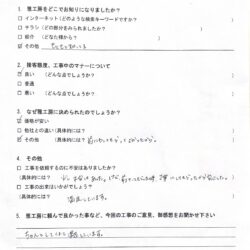 1. 雅工房をどこでお知りになりましたか?
□ インターネット (どのような検索キーワードですか? )
□ チラシ (どの部分をみられましたか? )
□ 紹介 (どなた様から? )
☑ その他
2. 接客態度、工事中のマナーについて
□ 良い (どんな点でしょうか? )
□ 普通
□ 悪い (どんな点でしょうか? )
3. なぜ雅工房に決められのでしょうか?
☑ 価格が安い
□ 他社との違い (具体的には? )
☑ その他 (具体的には?
4. その他
□ 工事を依頼するのに不安はありましたか?
(具体的には?
□ 工事の出来はいかがでしょう?
(具体的には? 満足しています。
5. 雅工房に頼んで良かった事など、今回の工事のご意見、御感想をお聞かせ下さい
ちゃんとしてくれて満足しています。